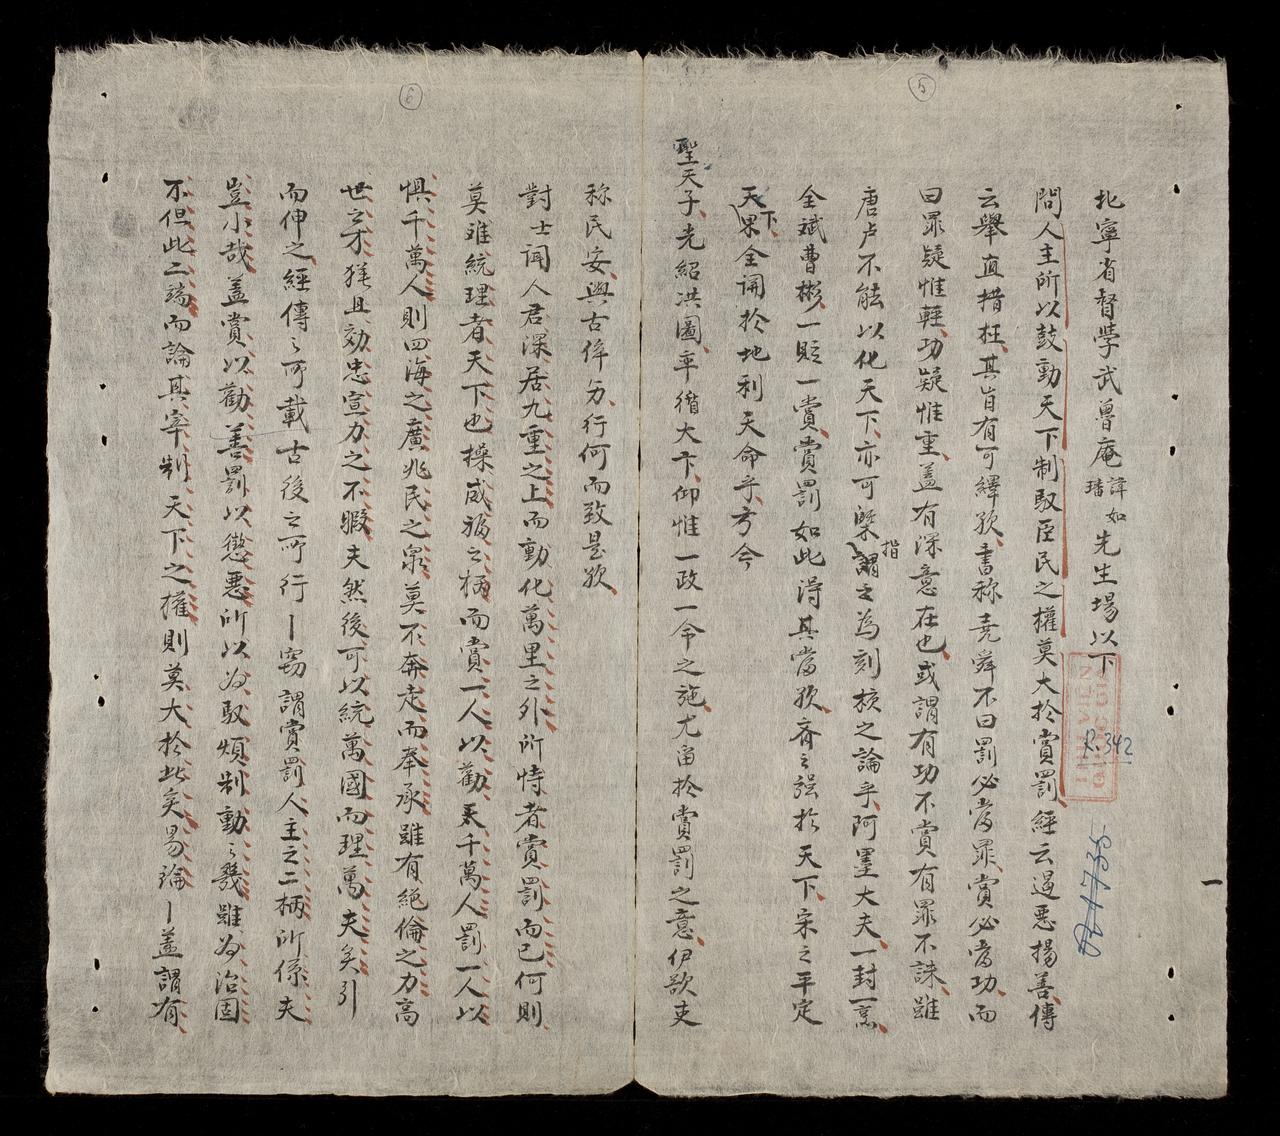 5
北寧省督學武魯庵諱如璠先生場以下
問人主所以鼓動天下制馭臣民之權莫大於賞罰經云遏惡揚善傳
云舉直措枉其旨有可繹欤書称堯舜不曰罰必當罪賞必當功而
曰罪疑惟軽功疑惟重盖有深意在也或謂有功不賞有罪不誅雖
唐卢不能以化天下亦可槩謂指之為刻核之論乎阿墨大夫一封一烹
全斌曹彬一貶一賞賞罰如此得其當欤齊之强於天下宋之平定
天下果全谓於地利天命乎方今
聖天子光紹洪圖率循大卞仰惟一政一令之施尤畄於賞罰之意伊欲吏
称民安與古侔另行何而致是欤
6
對士闻人君深居九重之上而動化萬里之外所恃者賞罰而已何則
莫难統理者天下也操威福之柄而賞一人以勸天千萬人罰一人以
惧千萬人則四海之廣兆民之衆莫不奔走而奉承雖有絶倫之力高
世之才猶且効忠宣力之不暇夫然後可以統萬國而理萬夫矣引
而伸之經傳之所載古後之所行丨窃謂賞罰人主之二柄所係夫
豈小哉盖賞以勸善罰以懲惡所以为馭煩制動之幾雖为治固
不但此二端而論其宰制天下之權則莫大於此矣易論丨盖謂有
一
R.342